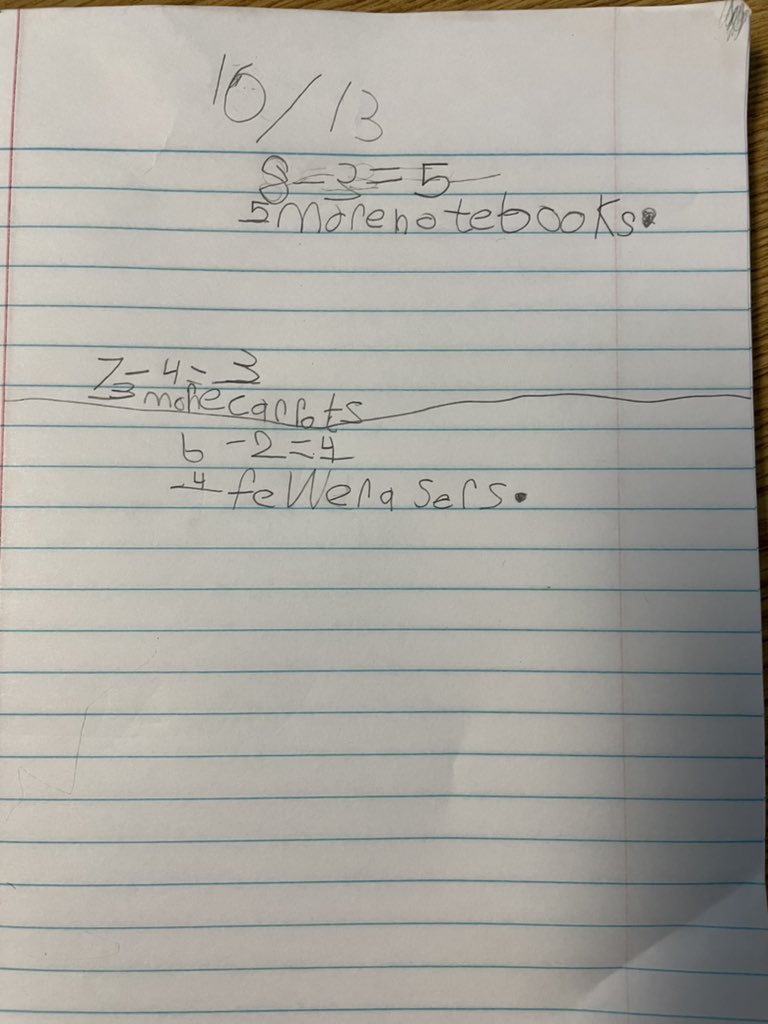 10/13
8-3=5
5 more notebooks.
7-4=3
3 more carrots
6-2=4
4 fewerasers.